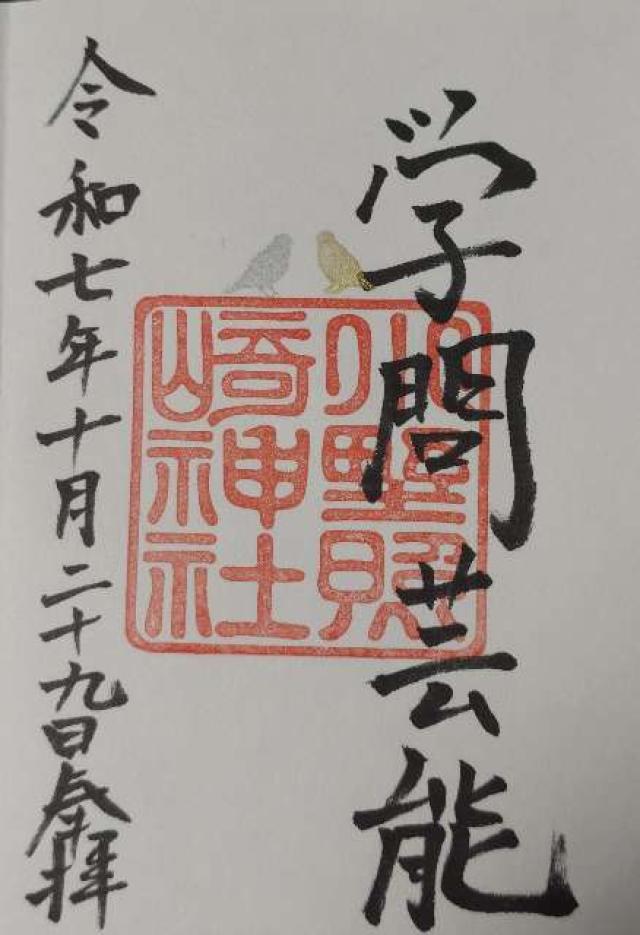 学問芸能
小野照
崎神社
令和七年十月二十九日参拝